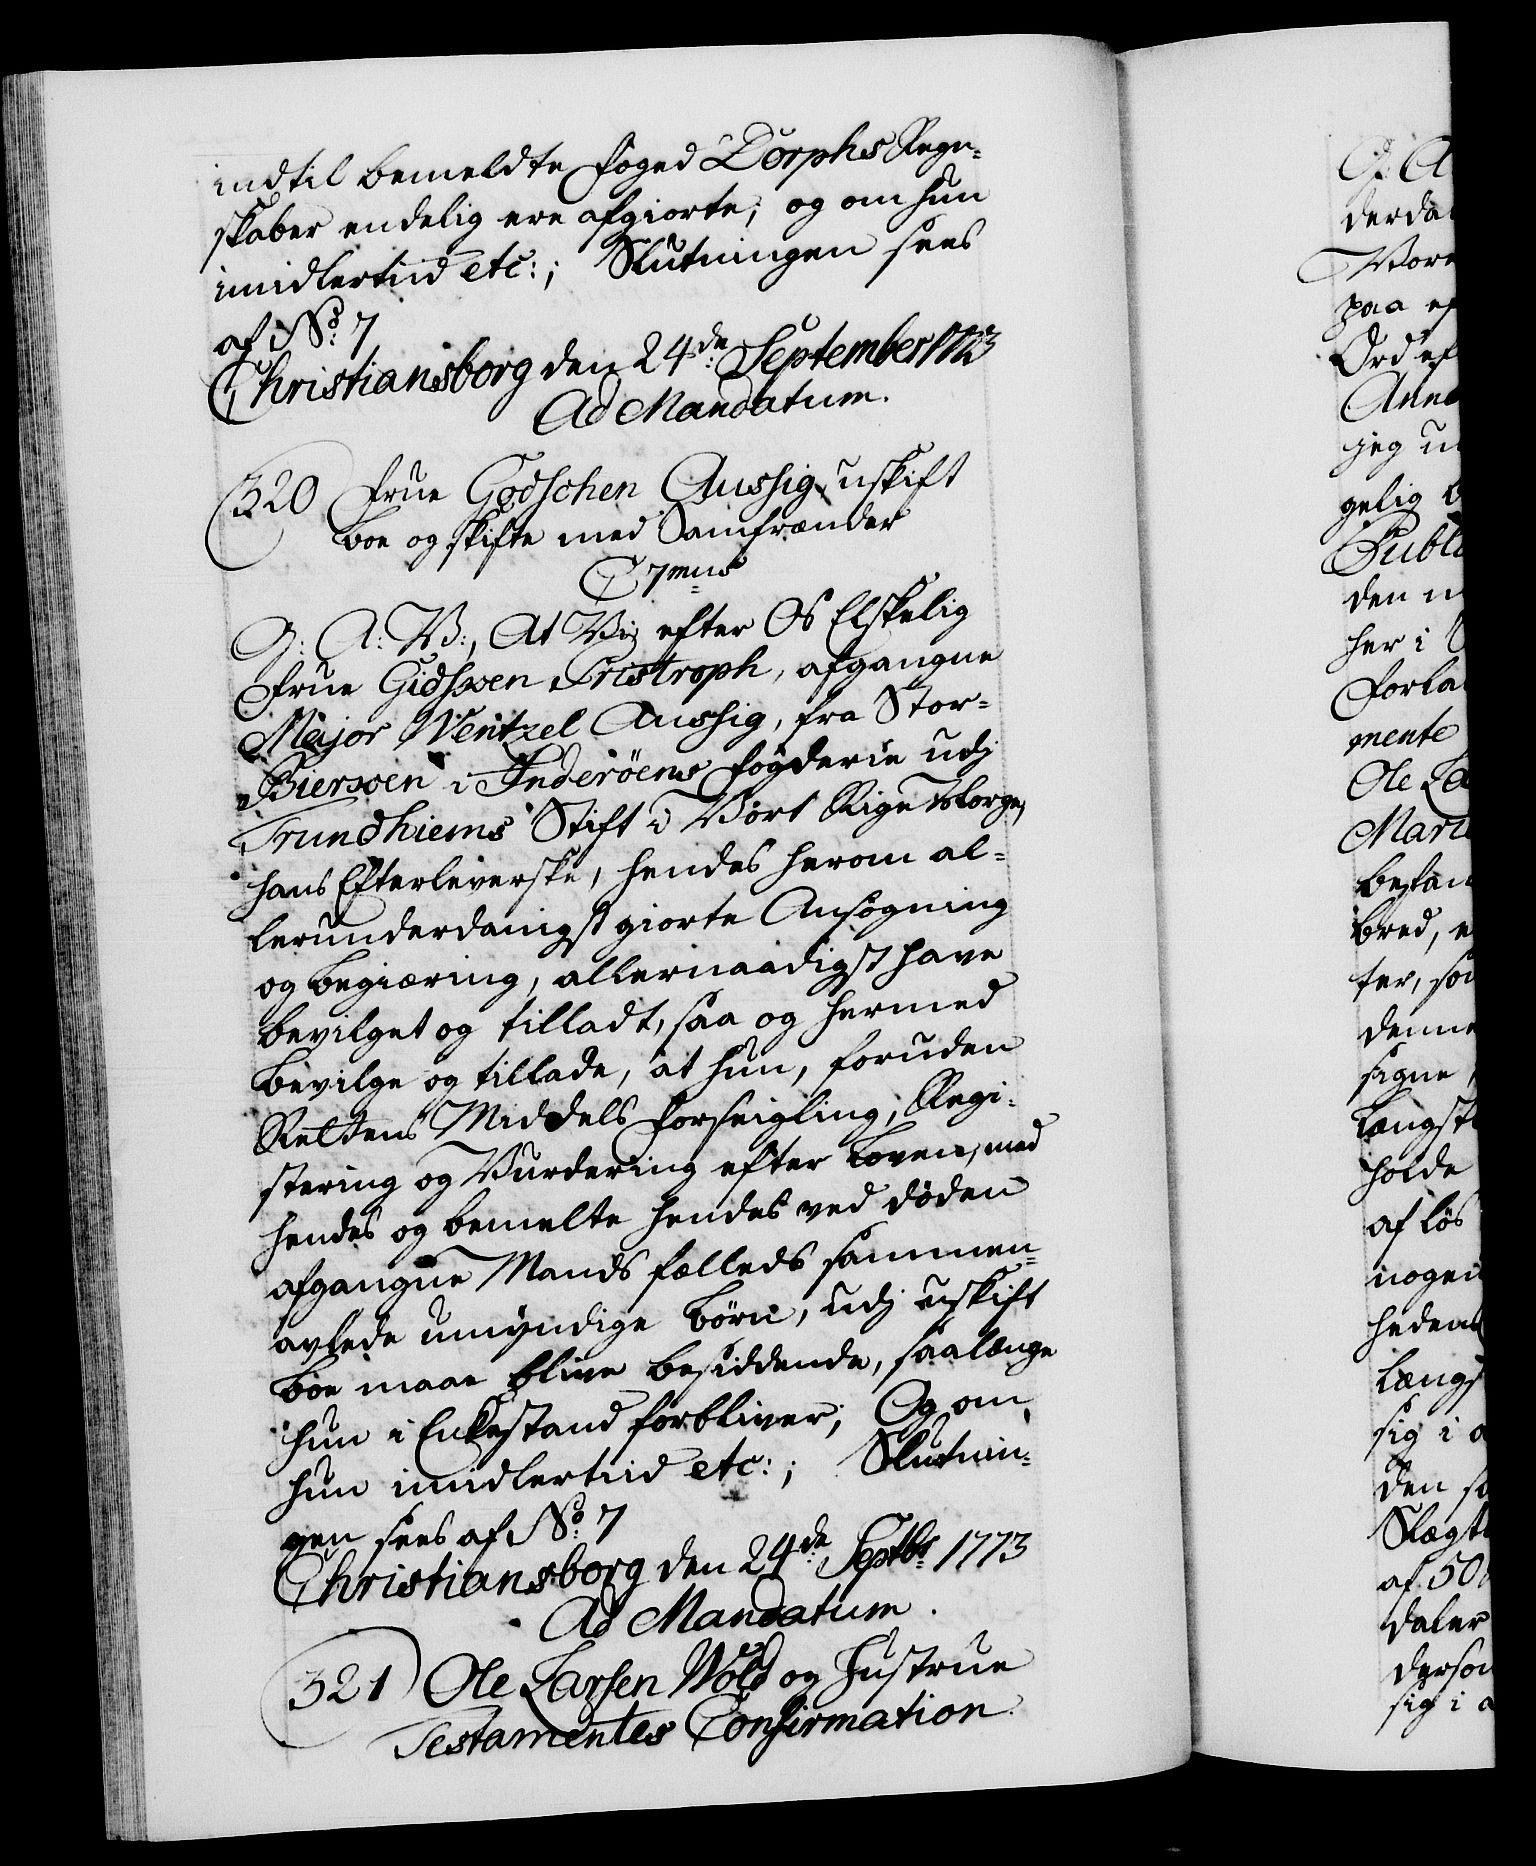 indtil bemeldte Foged Dorphs Regn-
skaber endelig ere afgiorte; og om hun
imidlertiid etc:; Slutningen sees
af No: 7
Christiansborg den 24de September 1773
Ad Mandatum.
320 Frue Godschen Aussig uskift
Boe og skifte med Samfrænder
C 7mus
G: A: V:, At Vi efter Os Elskelig
Frue Gidsken Pristroph, afgangne
Major Wentzel Aussig, fra Stor-
Biersven i Inderöens Fogderie udj
Trundhiems Stift i Vort Rige Norge,
hans Efterleverske, hendes herom al-
lerunderdanigst giorte Ansøgning
og begiæring, allernaadigst have
bevilget og tilladt, saa og hermed
bevilge og tillade, at hun, foruden
Rettens Middels Forseigling, Regi-
stering og Vurdering efter Loven, med
hendes og bemelte hendes ved døden
afgangne Mands fælleds sammen-
avlede umyndige børn, udj uskift
boe maae blive besiddende, saalænge
hun i Enkestand forbliver; Og om
hun imidlertiid etc:; Slutnin-
gen sees af No: 7
Christiansborg den 24de Septbr 1773
Ad Mandatum.
321 Ole Larsen Wold og Hustrue
Testamentes Confirmation.
G: A
derda
Vore
paa ef
Ord ef
Anne
jeg u
gelig
Publ
den
her i
Forla
mente
Ole La
Mari
bestan
bred, e
ter, so
denne
signe
Længst
holde
af løs
nogen
hedens
Længs
sig i
den
Slægt
af 50
daler
derson
sig i a